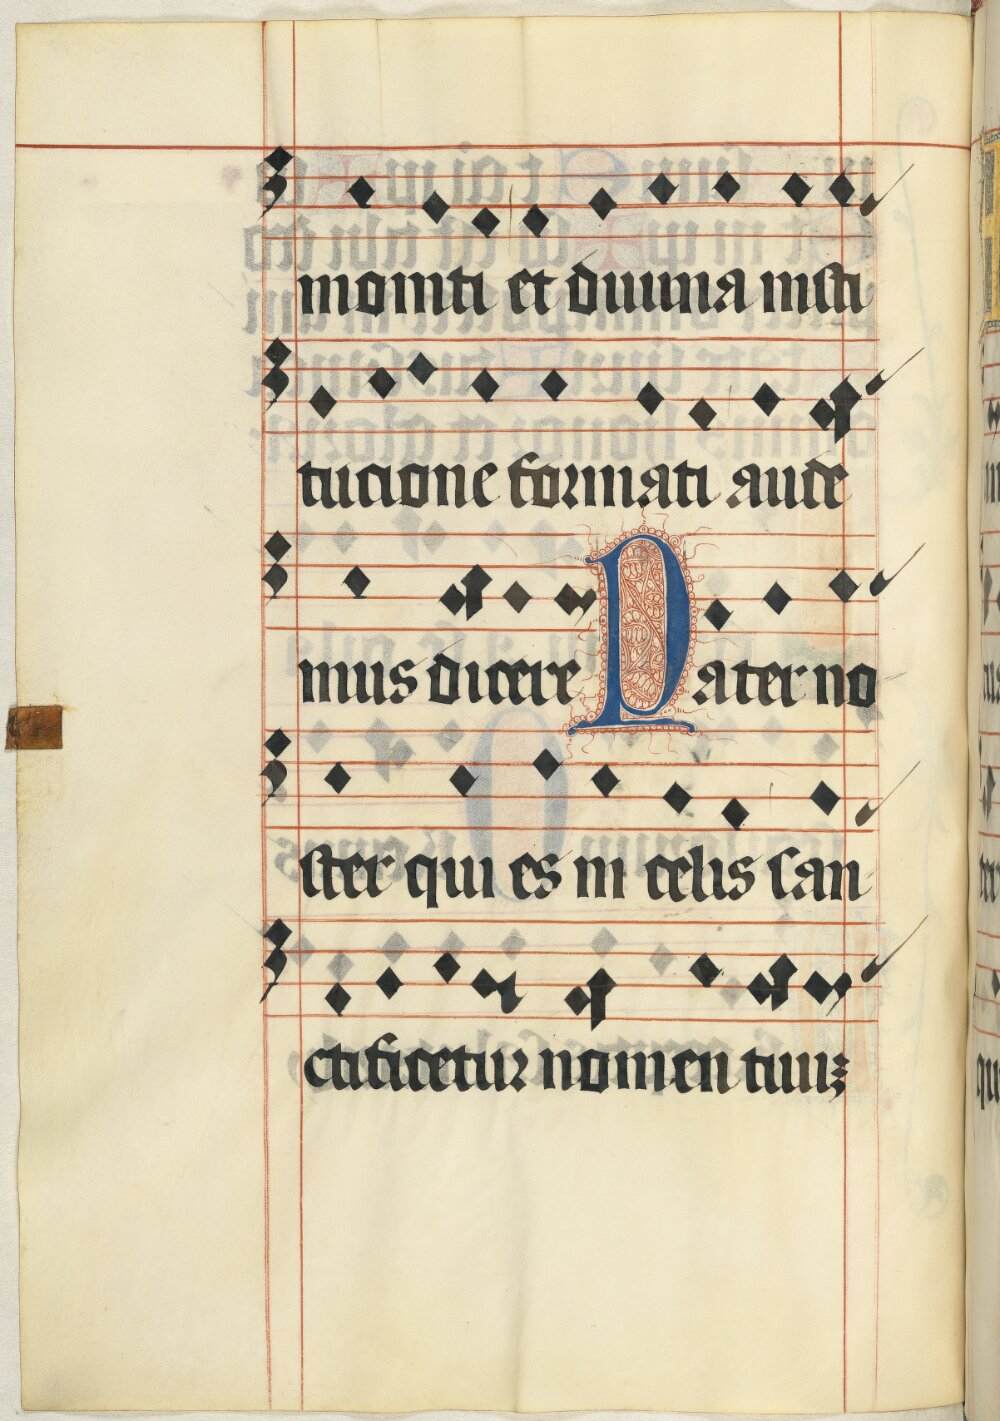 moniti et diuina insti
tucione formati aude
mus dicere Pater no
ster qui es in celis san
ctificetur nomen tuuꝫ